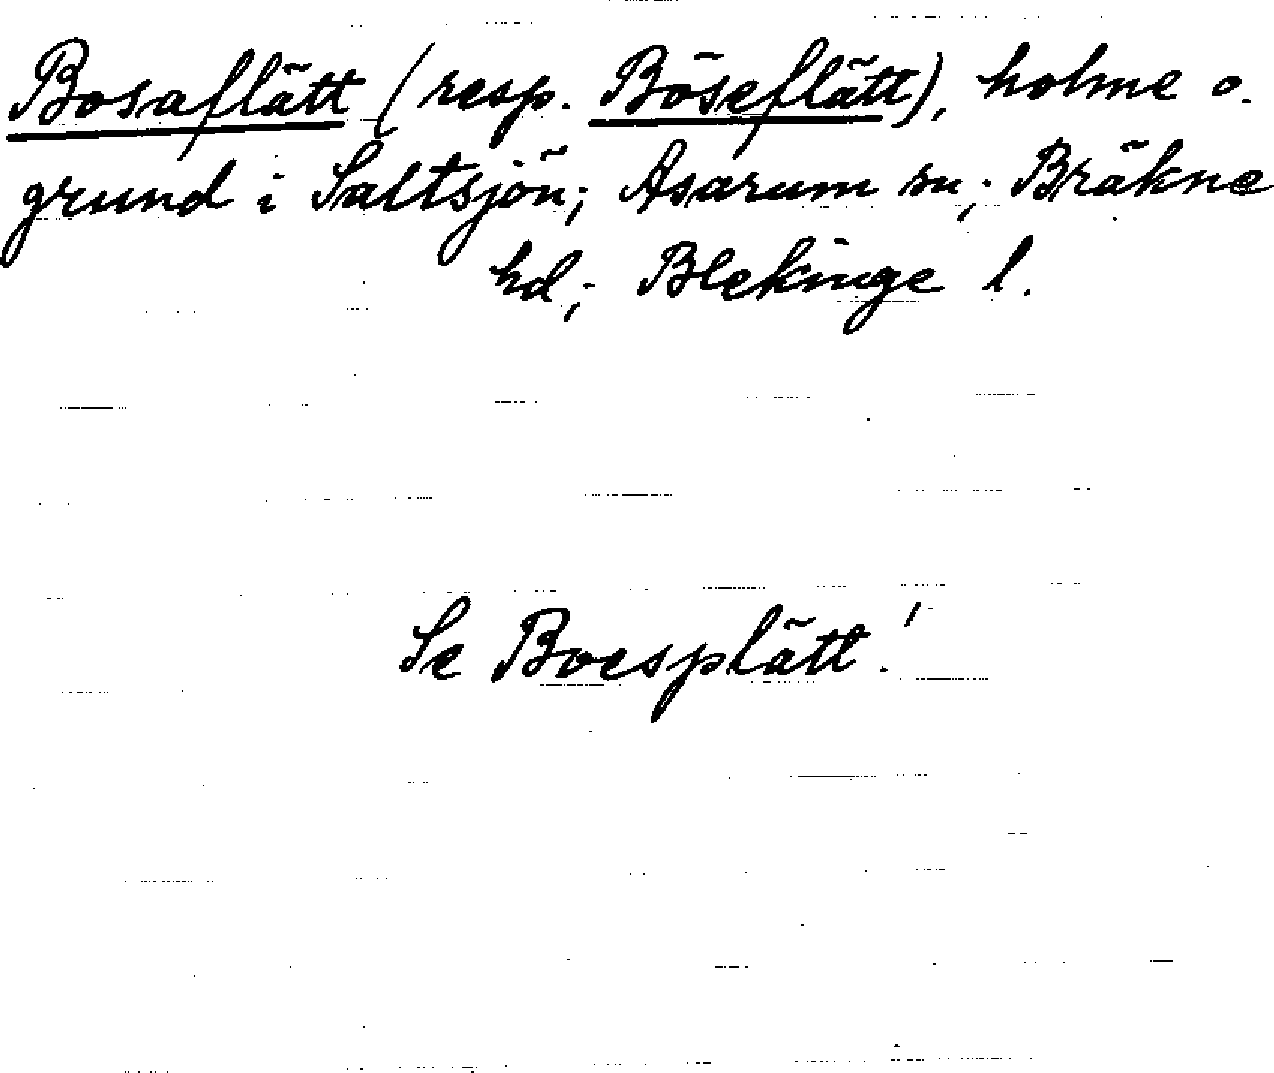 Bosaflätt (resp. Böseflätt), holme o.
grund i Saltsjön; Asarum sn; Bräkne
hd; Blekinge l.
Se Boesplätt!